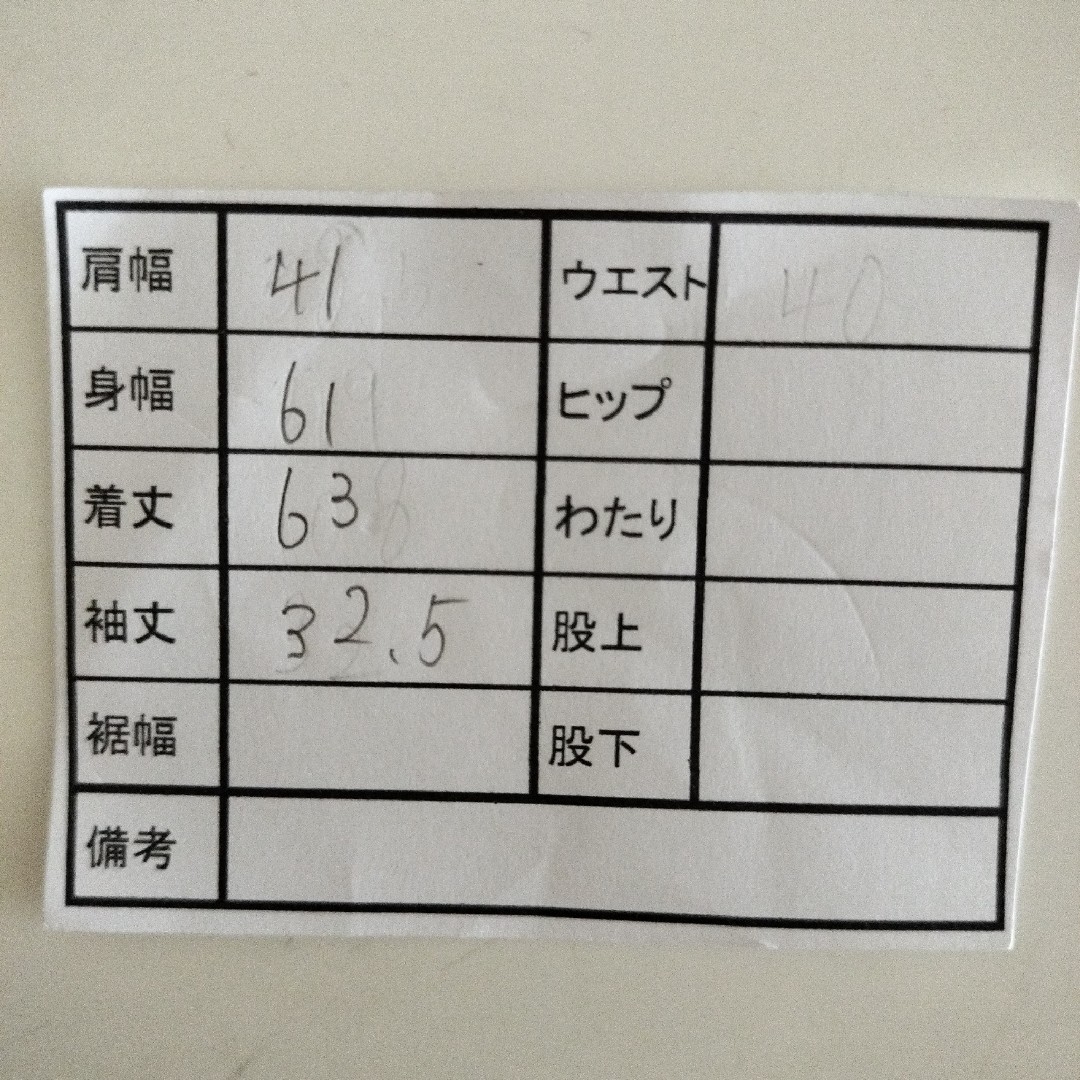 肩幅 41 ウエスト 40
身幅 61 ヒップ
着丈 63 わたり
袖丈 32.5 股上
裾幅 股下
備考